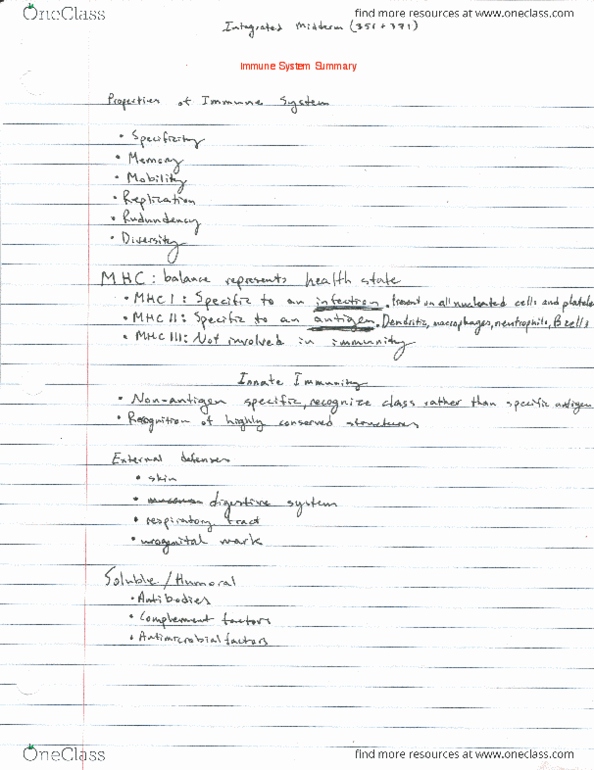 OneClass
find more resources at www.oneclass.com
Integrated Midterm (356 + 371)
Immune System Summary
Properties of Immune System
• Specificity
• Memory
• Mobility
• Replication
• Rudundency
• Diversity
MHC: balance represents health state
• MHC I: Specific to an infection. Present on all nucleated cells and platele
• MHC II: Specific to an antigen. Dendritic, macrophages, neutrophils, B cells
• MHC III: Not involved in immunity
Innate Immunity
• Non-antigen specific, recognize class rather than specific antigen
• Recognition of highly conserved structures
External defenses
• skin
• digestive system
• respiratory tract
• urogenital
Soluble / Humoral
• Antibodies
• Complement factors
• Antimicrobial factors
OneClass
find more resources at www.oneclass.com